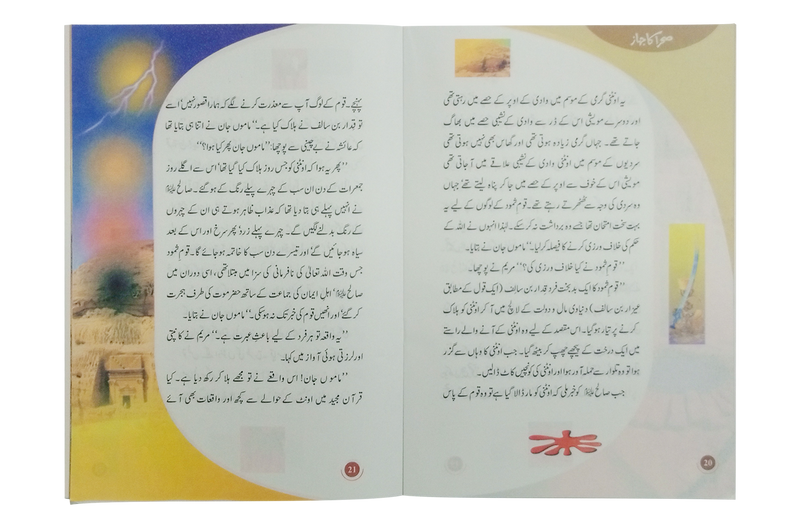 صحرا کا جہاز
یہ اونٹنی گرمی کے موسم میں وادی کے اوپر کے حصے میں رہتی تھی
اور دوسرے مویشی اس کے ڈر سے وادی کے نشیبی حصے میں بھاگ
جاتے تھے۔ جہاں گرمی زیادہ ہوتی تھی اور گھاس بھی نہیں ہوتی تھی
سردیوں کے موسم میں اونٹنی وادی کے نشیبی علاقے میں آ جاتی تھی
مویشی اس کے خوف سے اوپر کے حصے میں جا کر پناہ لیتے تھے، جہاں
وہ سردی کی وجہ سے ٹھٹھرتے رہتے تھے۔ قوم ثمود کے لوگوں کے لیے یہ
بہت سخت امتحان تھا جسے وہ برداشت نہ کر سکے۔ لہٰذا انہوں نے اللہ کے
حکم کی خلاف ورزی کرنے کا فیصلہ کر لیا۔‘‘ ماموں جان نے بتایا۔
’’قوم ثمود نے کیا خلاف ورزی کی؟‘‘ مریم نے پوچھا۔
’’قوم ثمود کا ایک بدبخت فرد قدار بن سالف (ایک قول کے مطابق
عیزار بن سالف) دنیاوی مال و دولت کے لالچ میں آ کر اونٹنی کو ہلاک
کرنے پر تیار ہو گیا۔ اس مقصد کے لیے وہ اونٹنی کے آنے والے راستے
میں ایک درخت کے پیچھے چھپ کر بیٹھ گیا۔ جب اونٹنی کا وہاں سے گزر
ہوا تو وہ تلوار سے حملہ آور ہوا اور اونٹنی کی کونچیں کاٹ ڈالیں۔
جب صالح علیہ السلام کو خبر ملی کہ اونٹنی کو مار ڈالا گیا ہے تو وہ قوم کے پاس
20
پہنچے۔ قوم کے لوگ آپ سے معذرت کرنے لگے کہ ہمارا قصور نہیں‘ اسے
تو قدار بن سالف نے ہلاک کیا ہے۔‘‘ ماموں جان نے اتنا ہی بتایا تھا
کہ عائشہ نے بے چینی سے پوچھا: ’’ماموں جان پھر کیا ہوا؟‘‘
’’پھر یہ ہوا کہ اونٹنی کو جس روز ہلاک کیا گیا تھا‘ اس سے اگلے روز
جمعرات کے دن ان سب کے چہرے پیلے رنگ کے ہو گئے۔ صالح علیہ السلام
نے انہیں پہلے ہی بتا دیا تھا کہ عذاب ظاہر ہوتے ہی ان کے چہروں
کے رنگ بدلنے لگیں گے۔ چہرے پہلے زرد‘ پھر سرخ اور اس کے بعد
سیاہ ہو جائیں گے‘ اور تیسرے دن سب کا خاتمہ ہو جائے گا۔ قوم ثمود
جس وقت اللہ تعالیٰ کی نافرمانی کی سزا میں مبتلا تھی، اسی دوران میں
صالح علیہ السلام‘ اہل ایمان کی جماعت کے ساتھ حضرموت کی طرف ہجرت
کر گئے‘ اور انھیں قوم کی خبر تک نہ ہو سکی۔‘‘ ماموں جان نے بتایا۔
’’یہ واقعہ تو ہر فرد کے لیے باعثِ عبرت ہے۔‘‘ مریم نے کانپتی
اور لرزتی ہوئی آواز میں کہا۔
’’ماموں جان! اس واقعے نے تو مجھے ہلا کر رکھ دیا ہے۔ کیا
قرآن مجید میں اونٹ کے حوالے سے کچھ اور واقعات بھی آئے
21